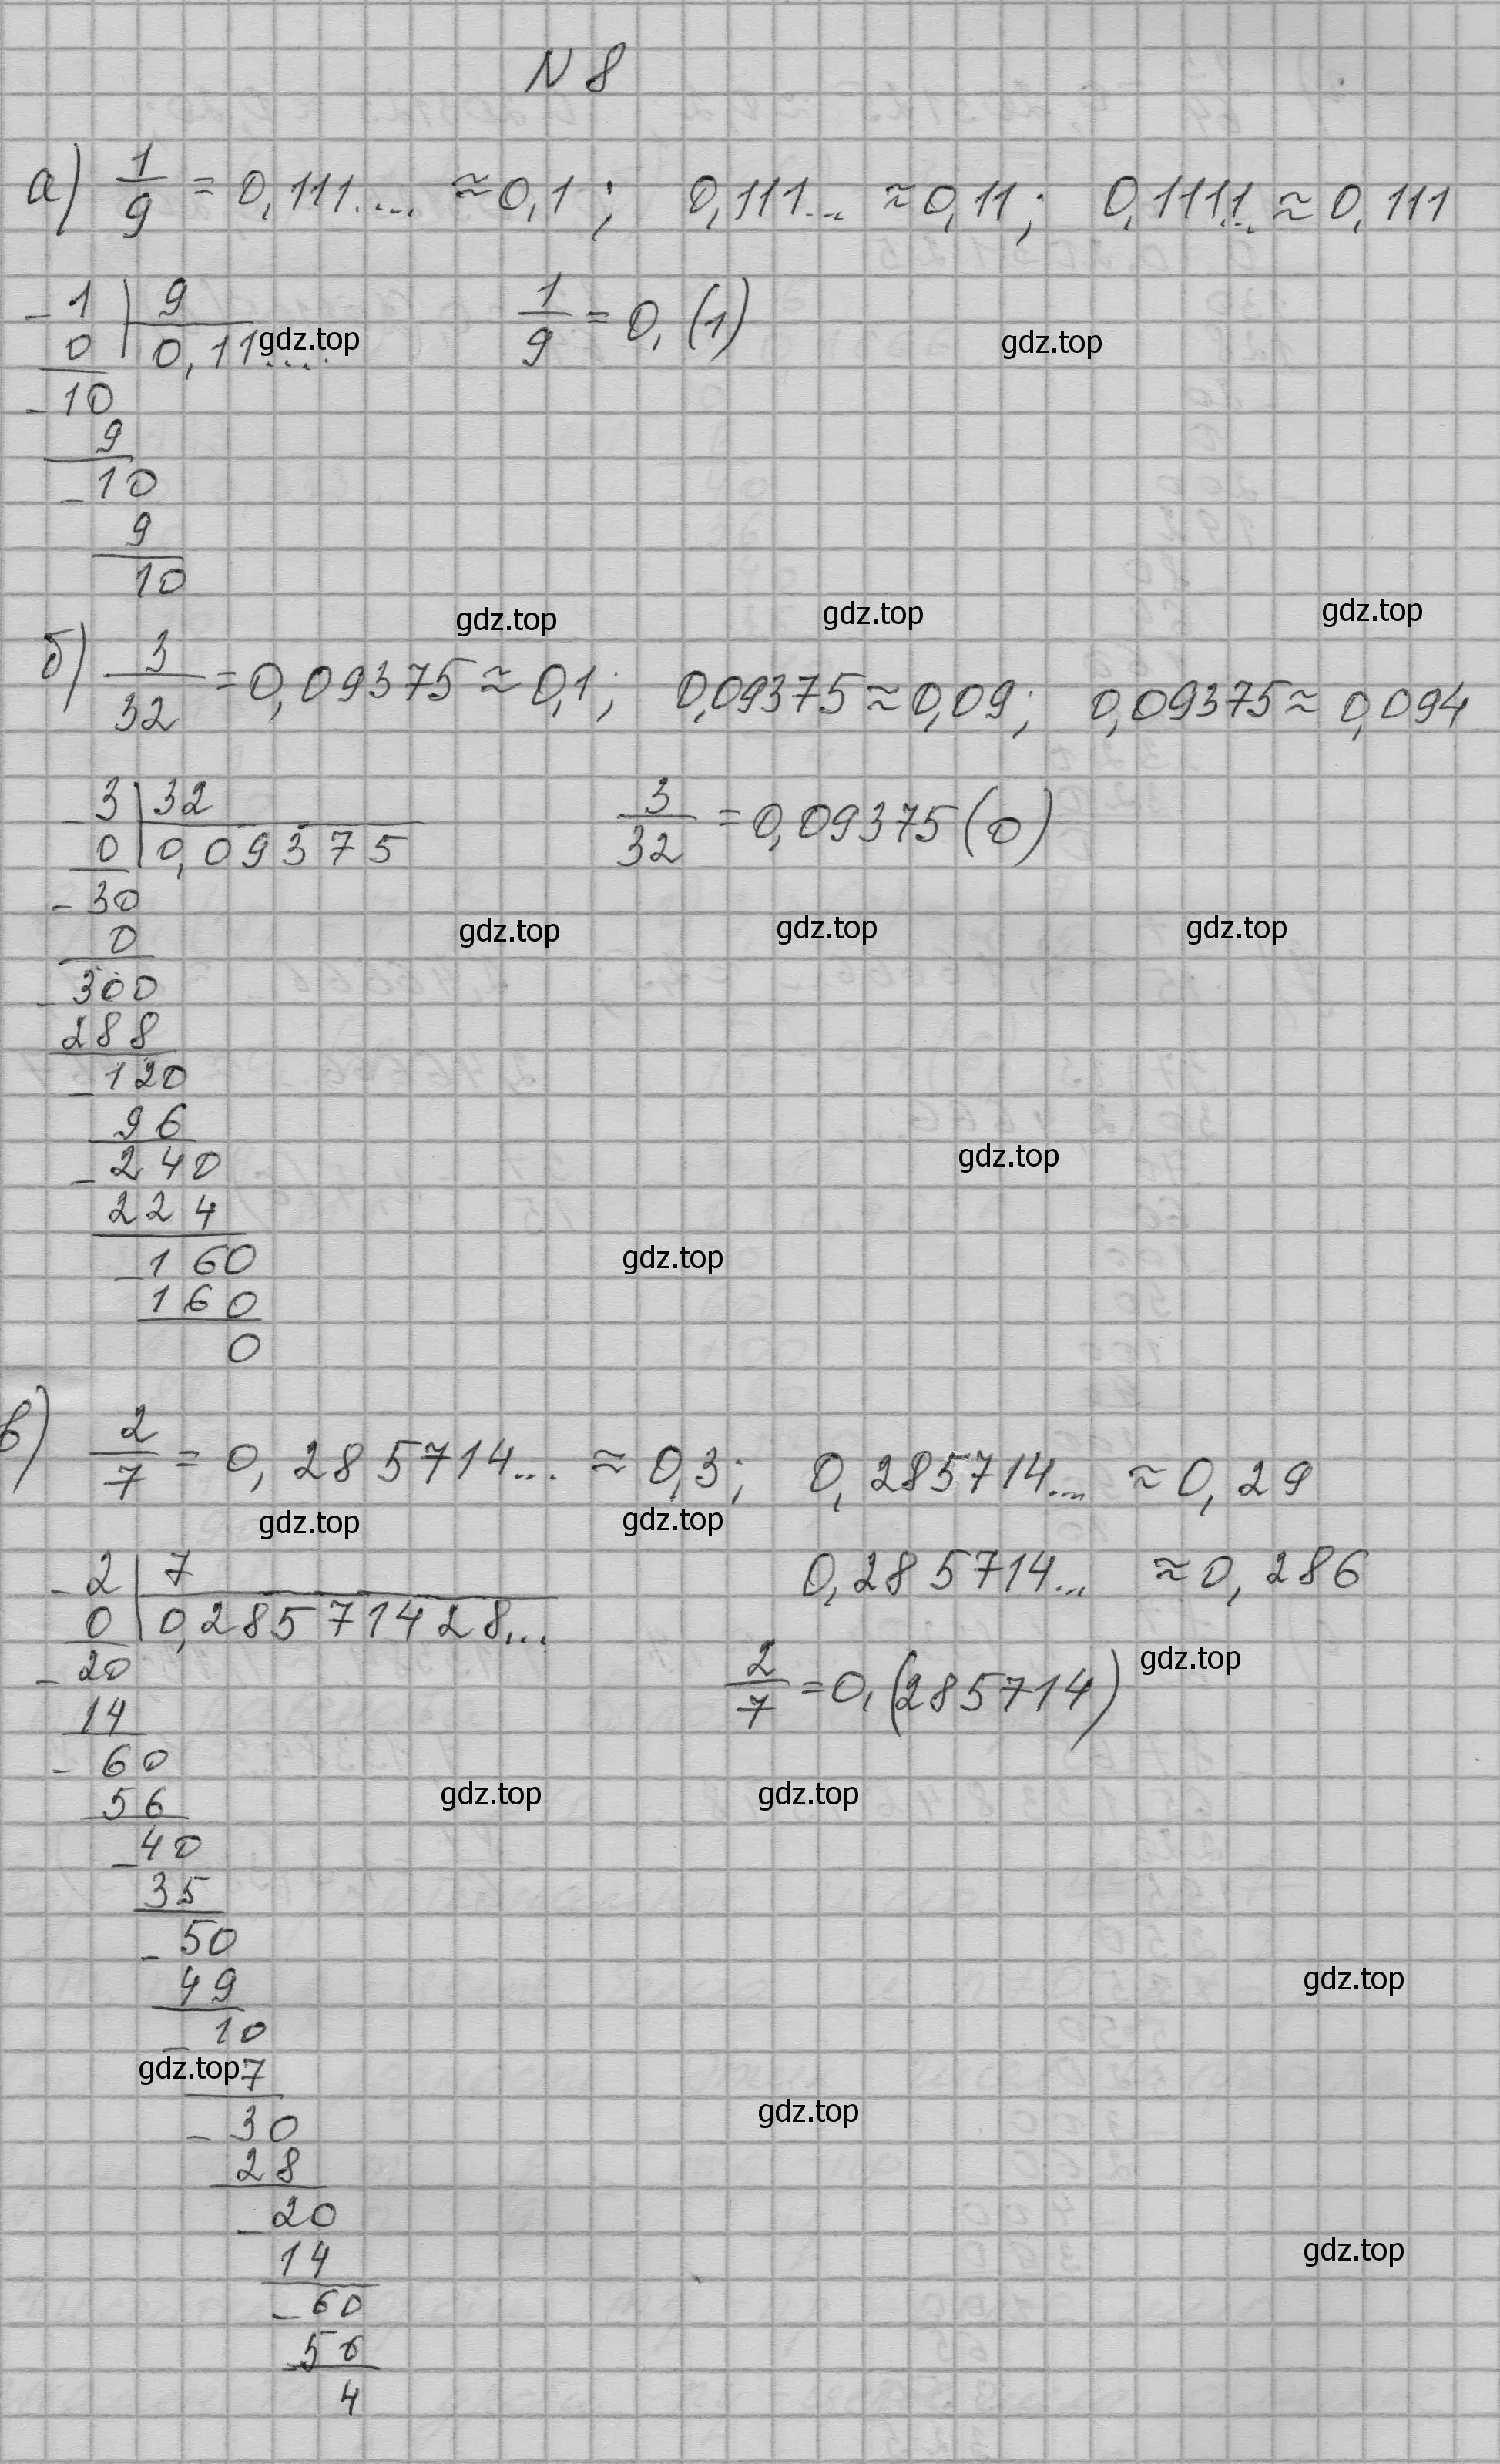 N 8
а) 1/9 = 0,111.... ≈ 0,1 ; 0,111... ≈ 0,11 ; 0,1111... ≈ 0,111
- 1 | 9 1/9 = 0,(1)
0 | 0,11.... gdz.top gdz.top
- 10
9
- 10
9
10
gdz.top gdz.top gdz.top
б) 3/32 = 0,09375 ≈ 0,1 ; 0,09375 ≈ 0,09 ; 0,09375 ≈ 0,094
- 3 | 32 3/32 = 0,09375(0)
0 | 0,09375
- 30
gdz.top gdz.top gdz.top
0
- 300
288
- 120
96
- 240 gdz.top
224
- 160 gdz.top
160
0
в) 2/7 = 0,285714... ≈ 0,3 ; 0,285714... ≈ 0,29
gdz.top gdz.top
- 2 | 7 0,285714... ≈ 0,286
0 | 0,28571428...
- 20 2/7 = 0,(285714) gdz.top
14
- 60
56 gdz.top gdz.top
- 40
35
- 50
49 gdz.top
- 10
gdz.top 7
- 30 gdz.top
28
- 20
14 gdz.top
- 60
56
4